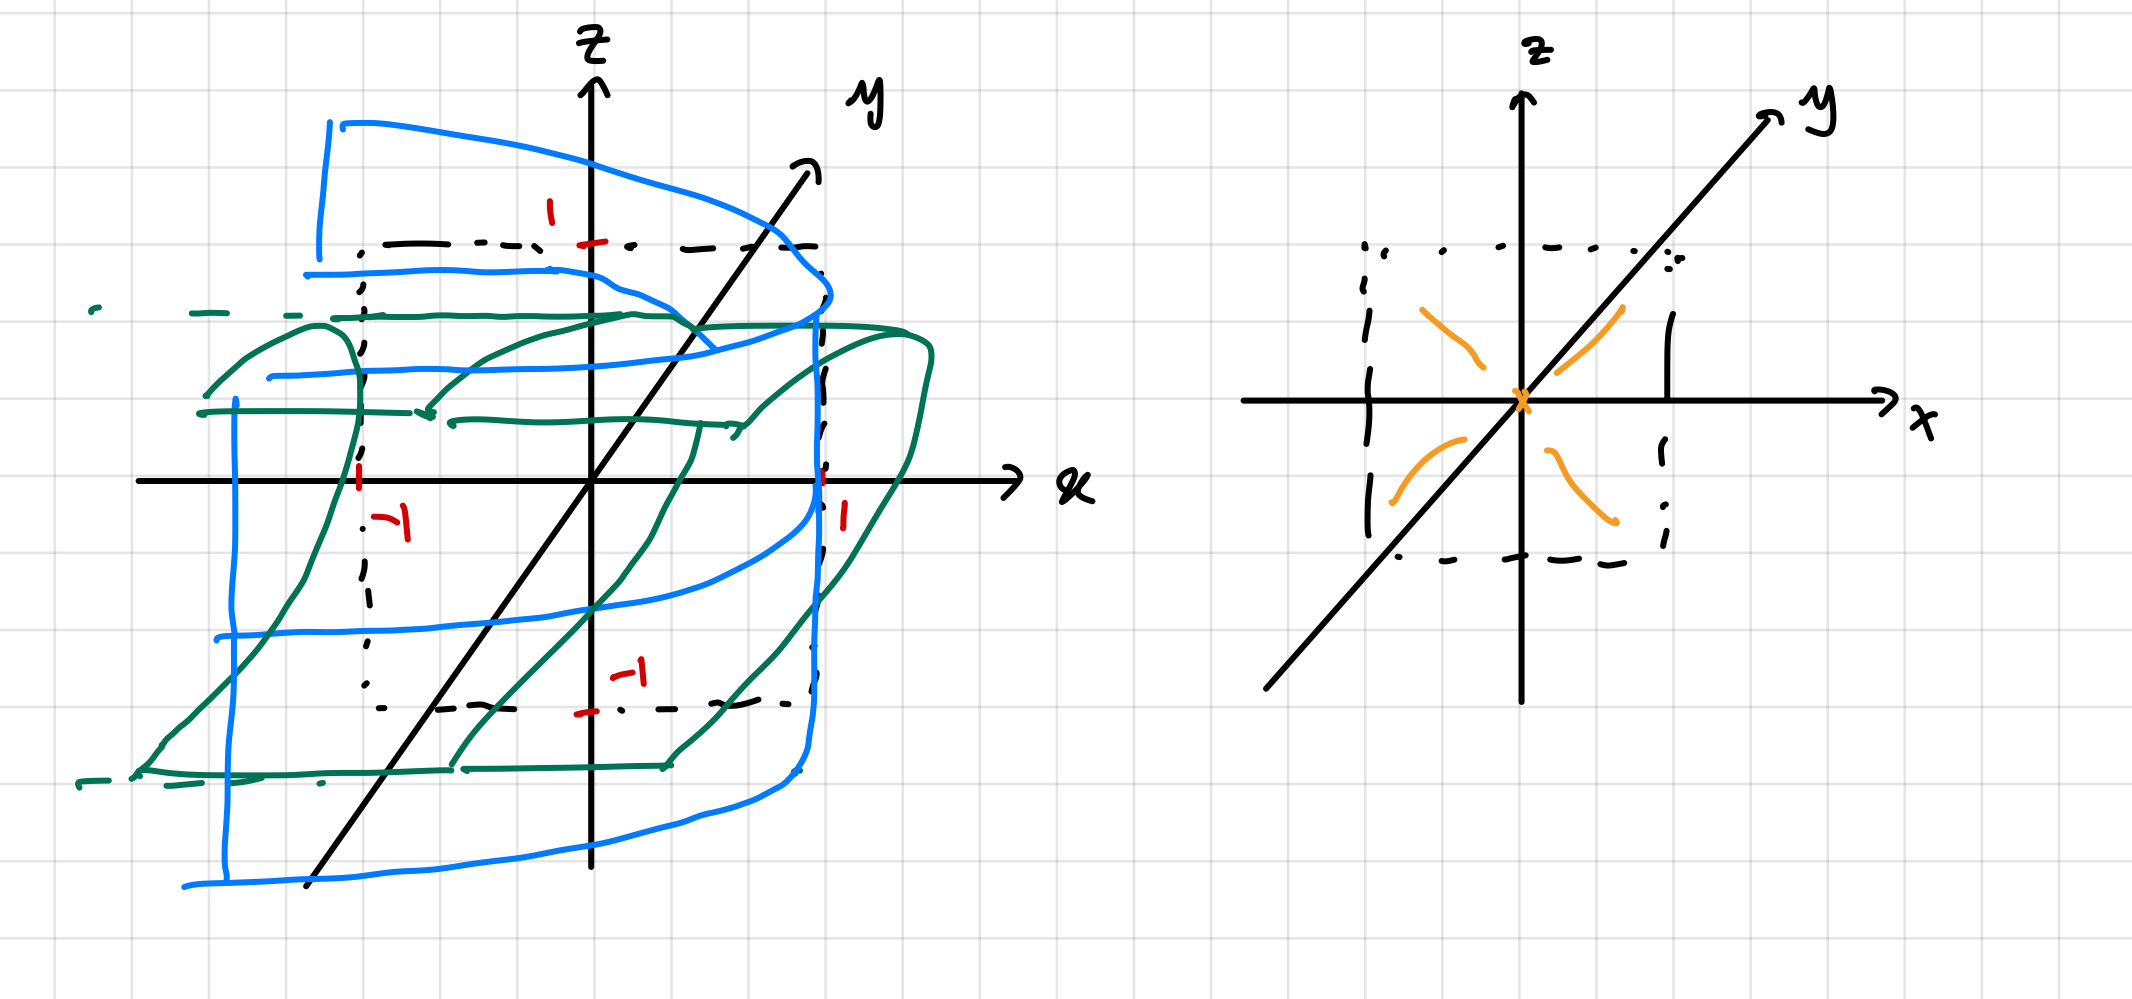 z
y
1
x
-1
1
-1
z
y
x